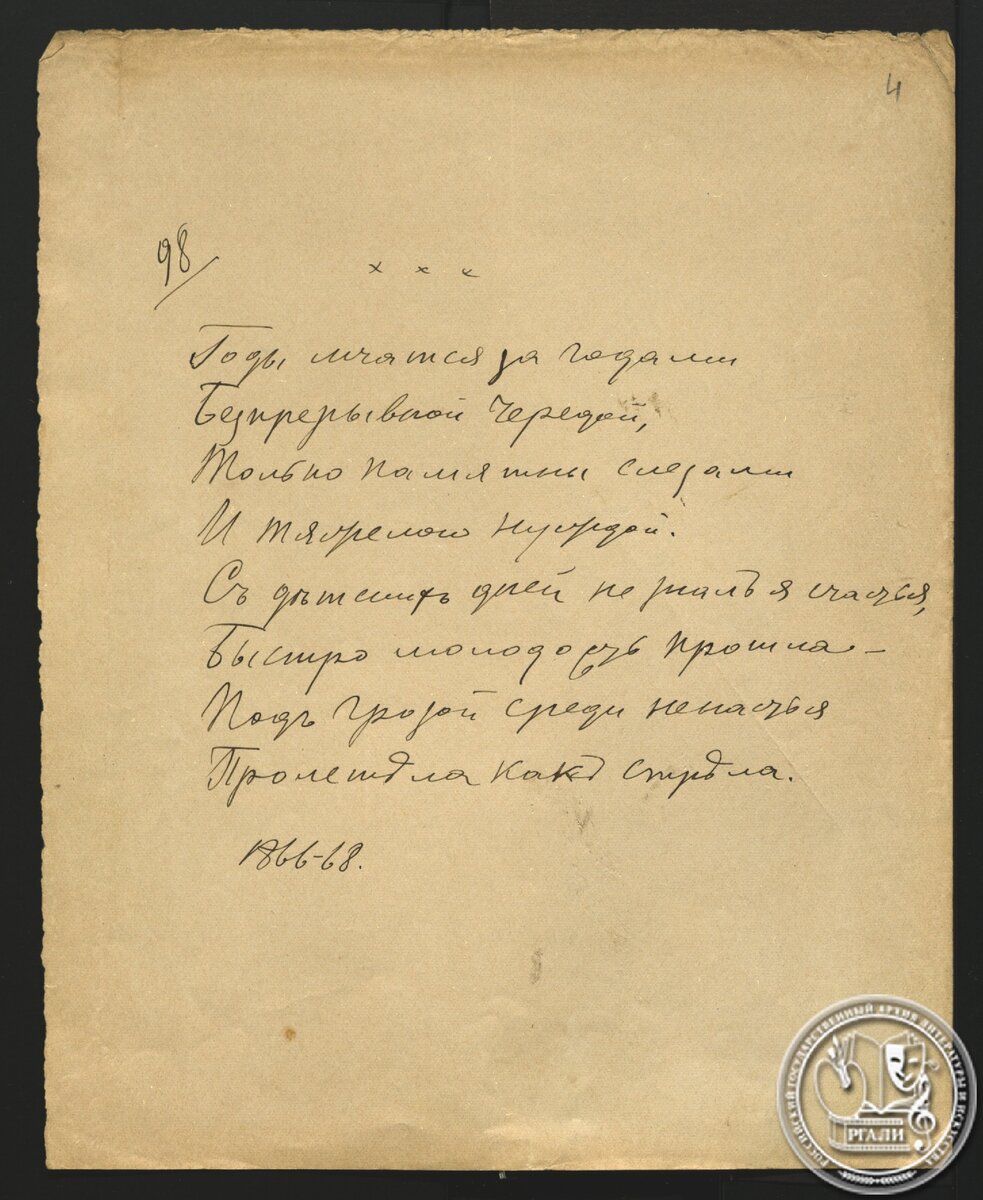 4
98/
x x x
Годы мчатся за годами
Безпрерывной чередой,
Только памятны слезами
И тяжелою нуждой.
Съ дѣтскихъ дней не зналъ я счастья,
Быстро молодость прошла –
Подъ грозой среди ненастья
Пролетѣла какъ стрѣла.
1866-68.
РОССИЙСКИЙ ГОСУДАРСТВЕННЫЙ АРХИВ ЛИТЕРАТУРЫ И ИСКУССТВА
РГАЛИ